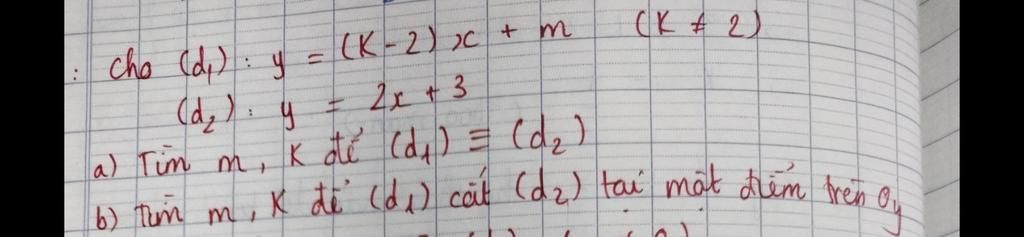 : Cho (d₁) : y = (K-2) x + m (K ≠ 2)
(d₂) : y = 2x + 3
a) Tìm m, K để (d₁) ≡ (d₂)
b) Tìm m, K để (d₁) cắt (d₂) tại một điểm trên Oy